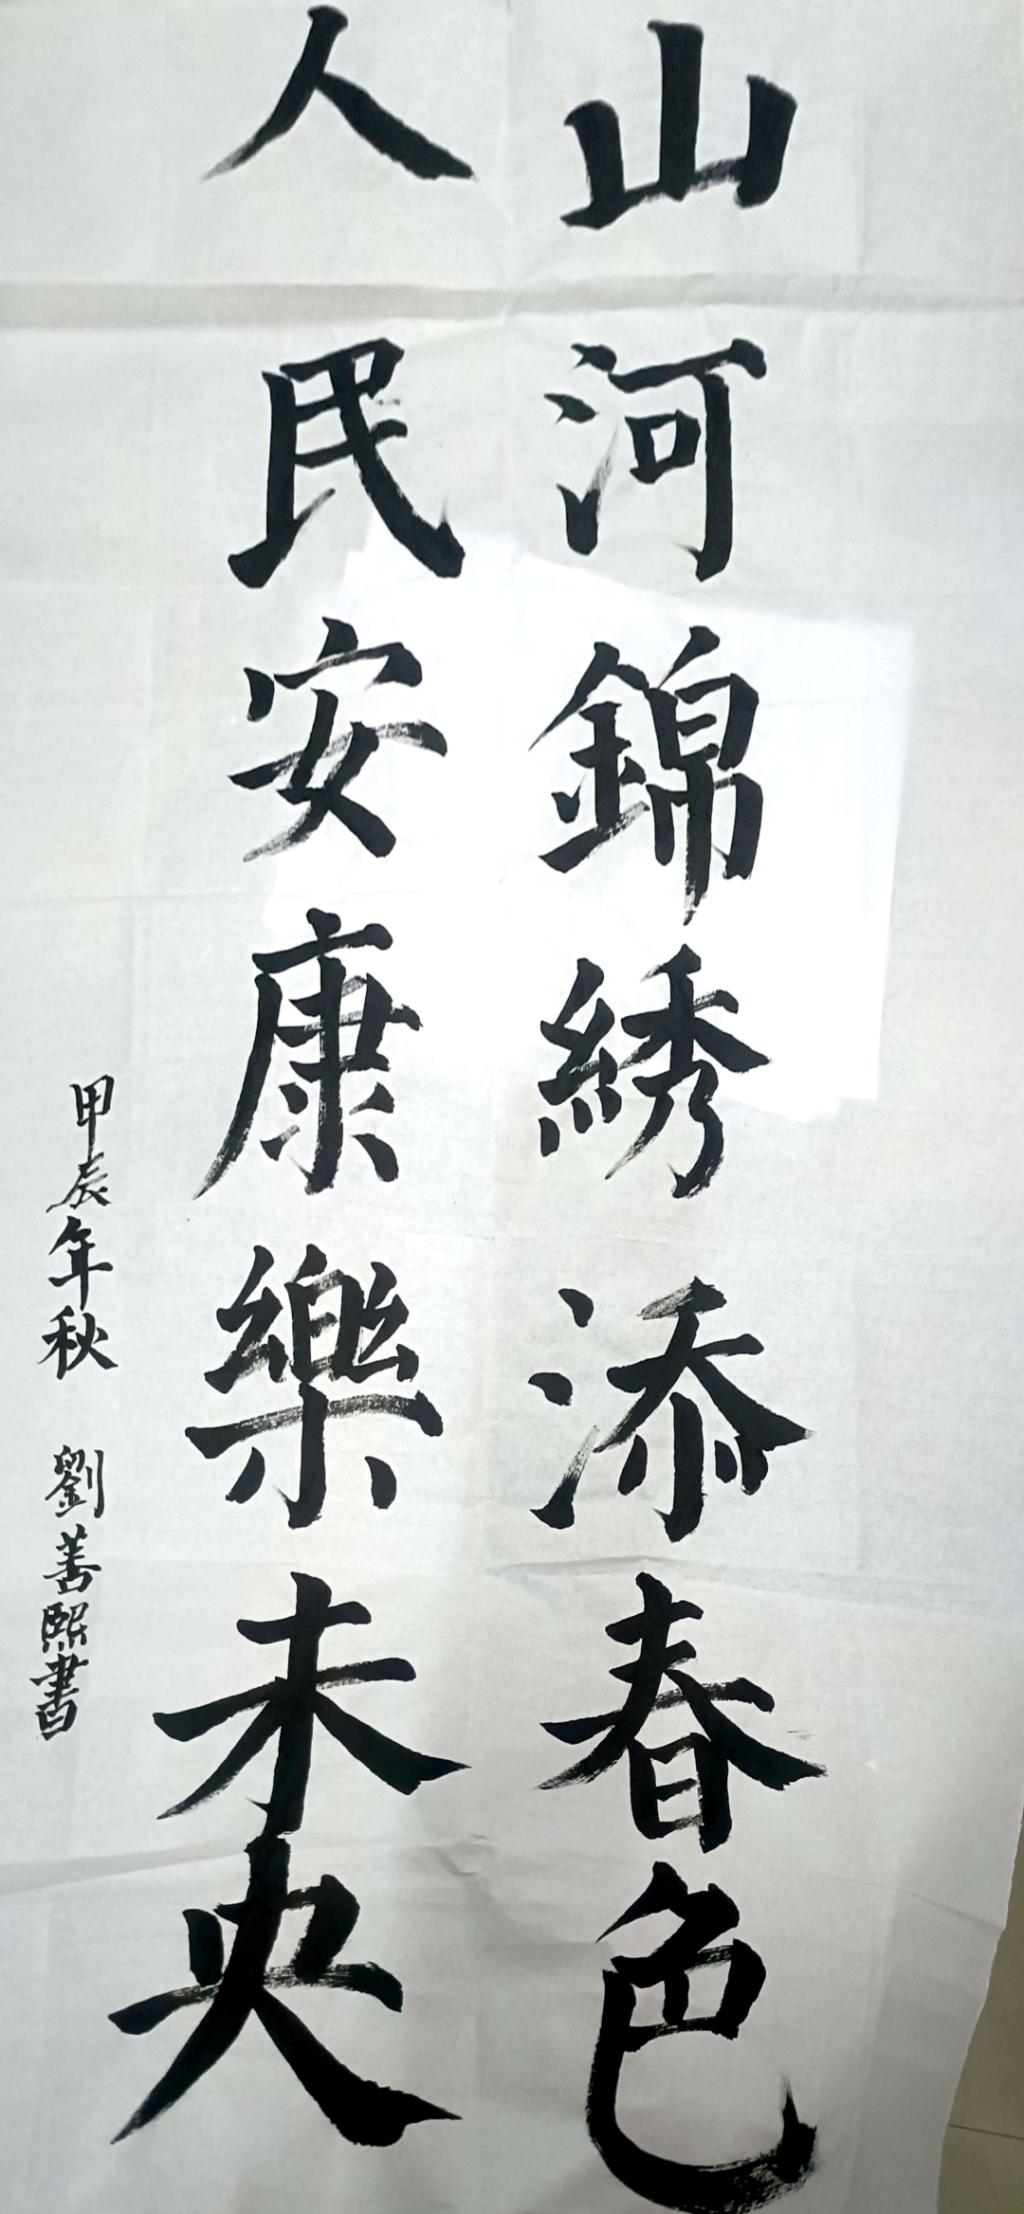 山河錦綉添春色
人民安康樂未央
甲辰年秋 劉善熙書